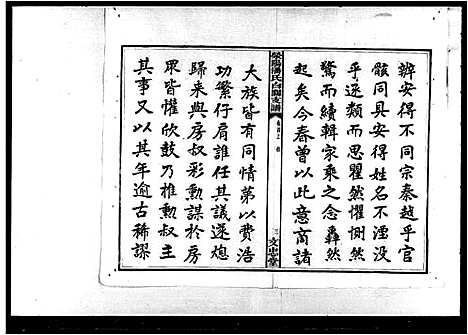 辨安得不同宗秦越乎官
骸同具安得姓名不湮没
乎逐類而思瞿然懼惻然
驚而續輯家乘之念轟然
起矣今春曾以此意商諸
滎陽潘氏白關支譜
三 文忠堂
大族皆有同情第以費浩
功繁仔肩誰任其議遂炮
歸来與房叔彩勳謀於房
眾皆懽欣鼓乃推勲叔主
其事又以其年逾古稀謬